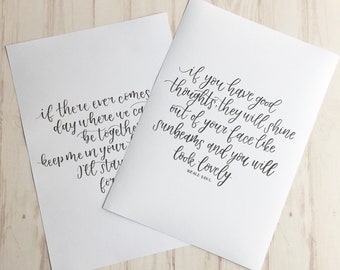 if there ever comes
day where we ca
be together
keep me in your
I'll stay
for
if you have good
thoughts they will shine
out of your face like
sunbeams and you will
look lovely